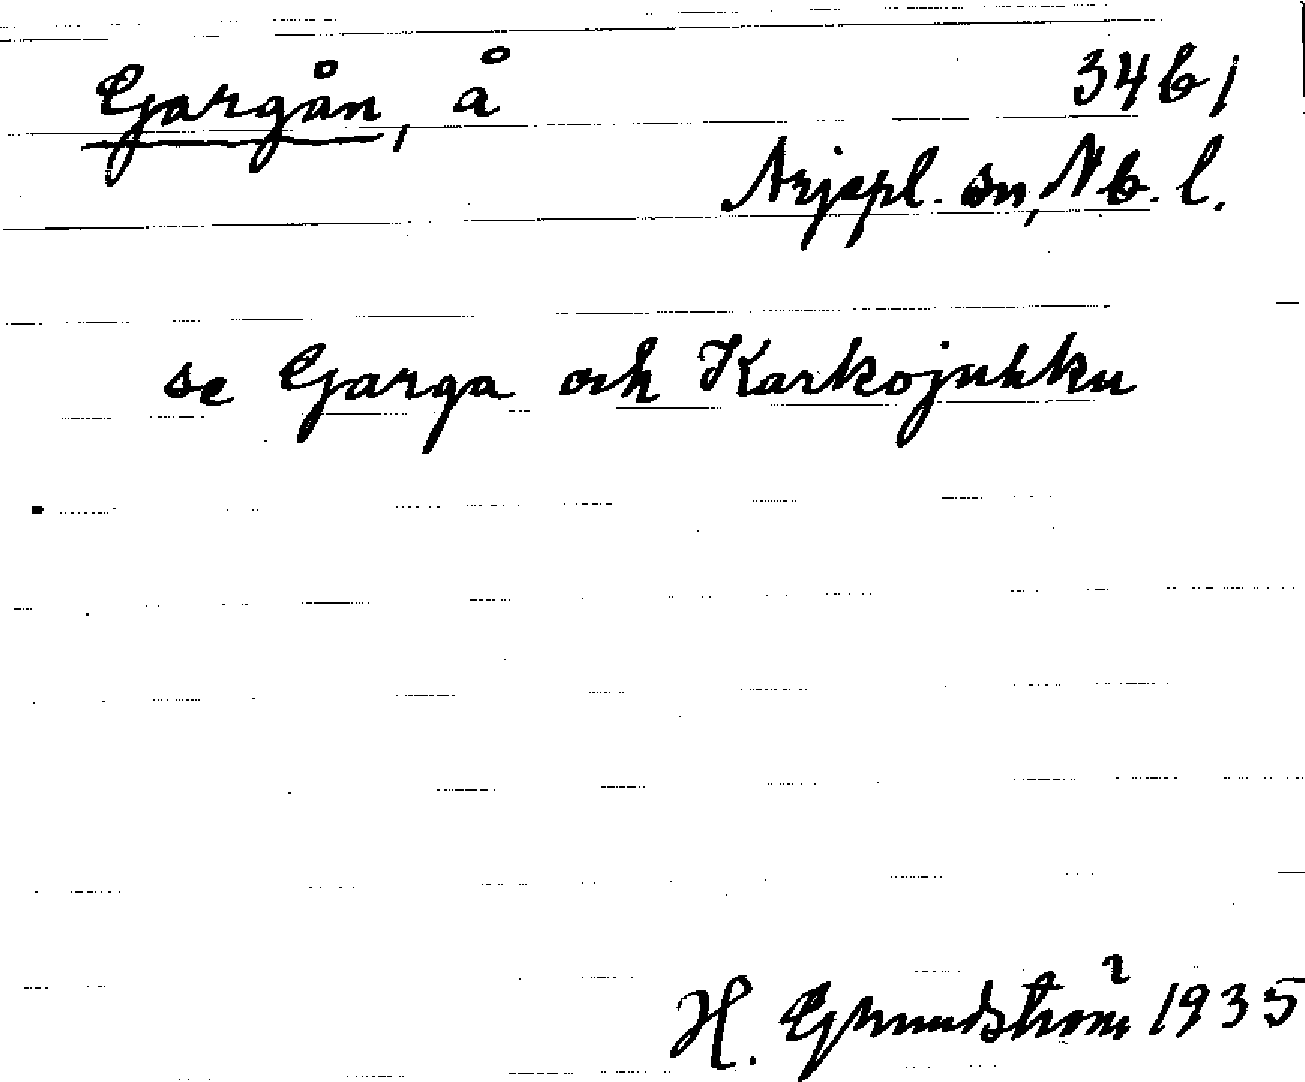 Gargån, å 3461
Arjepl. sn, Nb. l.
se Garga och Karkojuhku
H. Grundström 1935